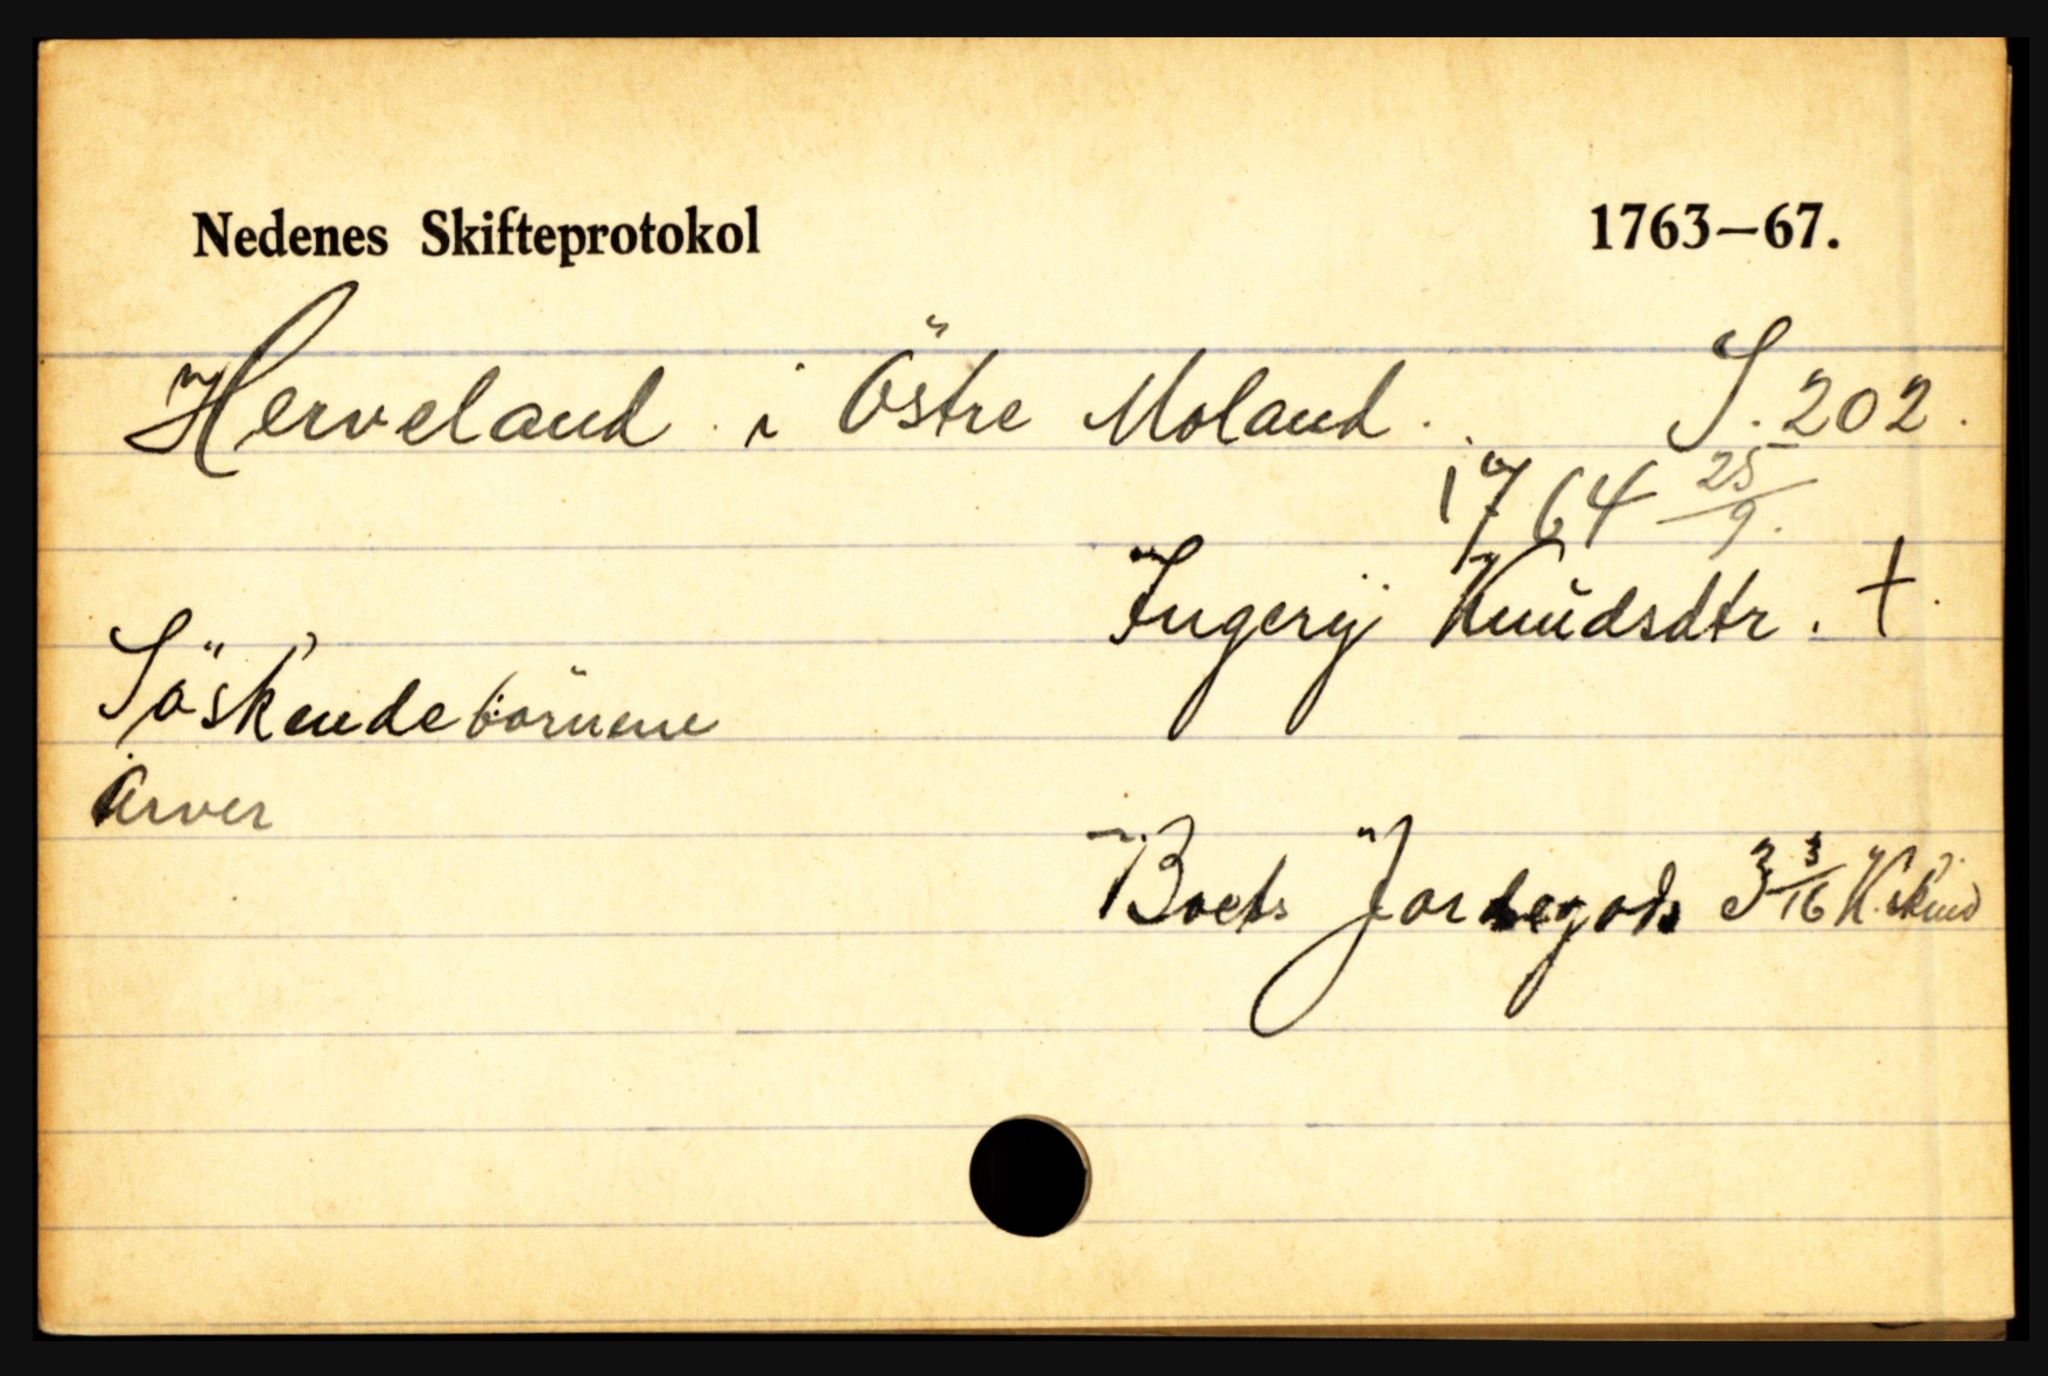 Nedenes Skifteprotokol 1763—67.
Herveland i Östre Moland. S. 202.
1764 25/9.
Ingerij Knudsdtr. †.
Söskendebörnene
Arver
Boets Jordegods 3 3/16 K. skind